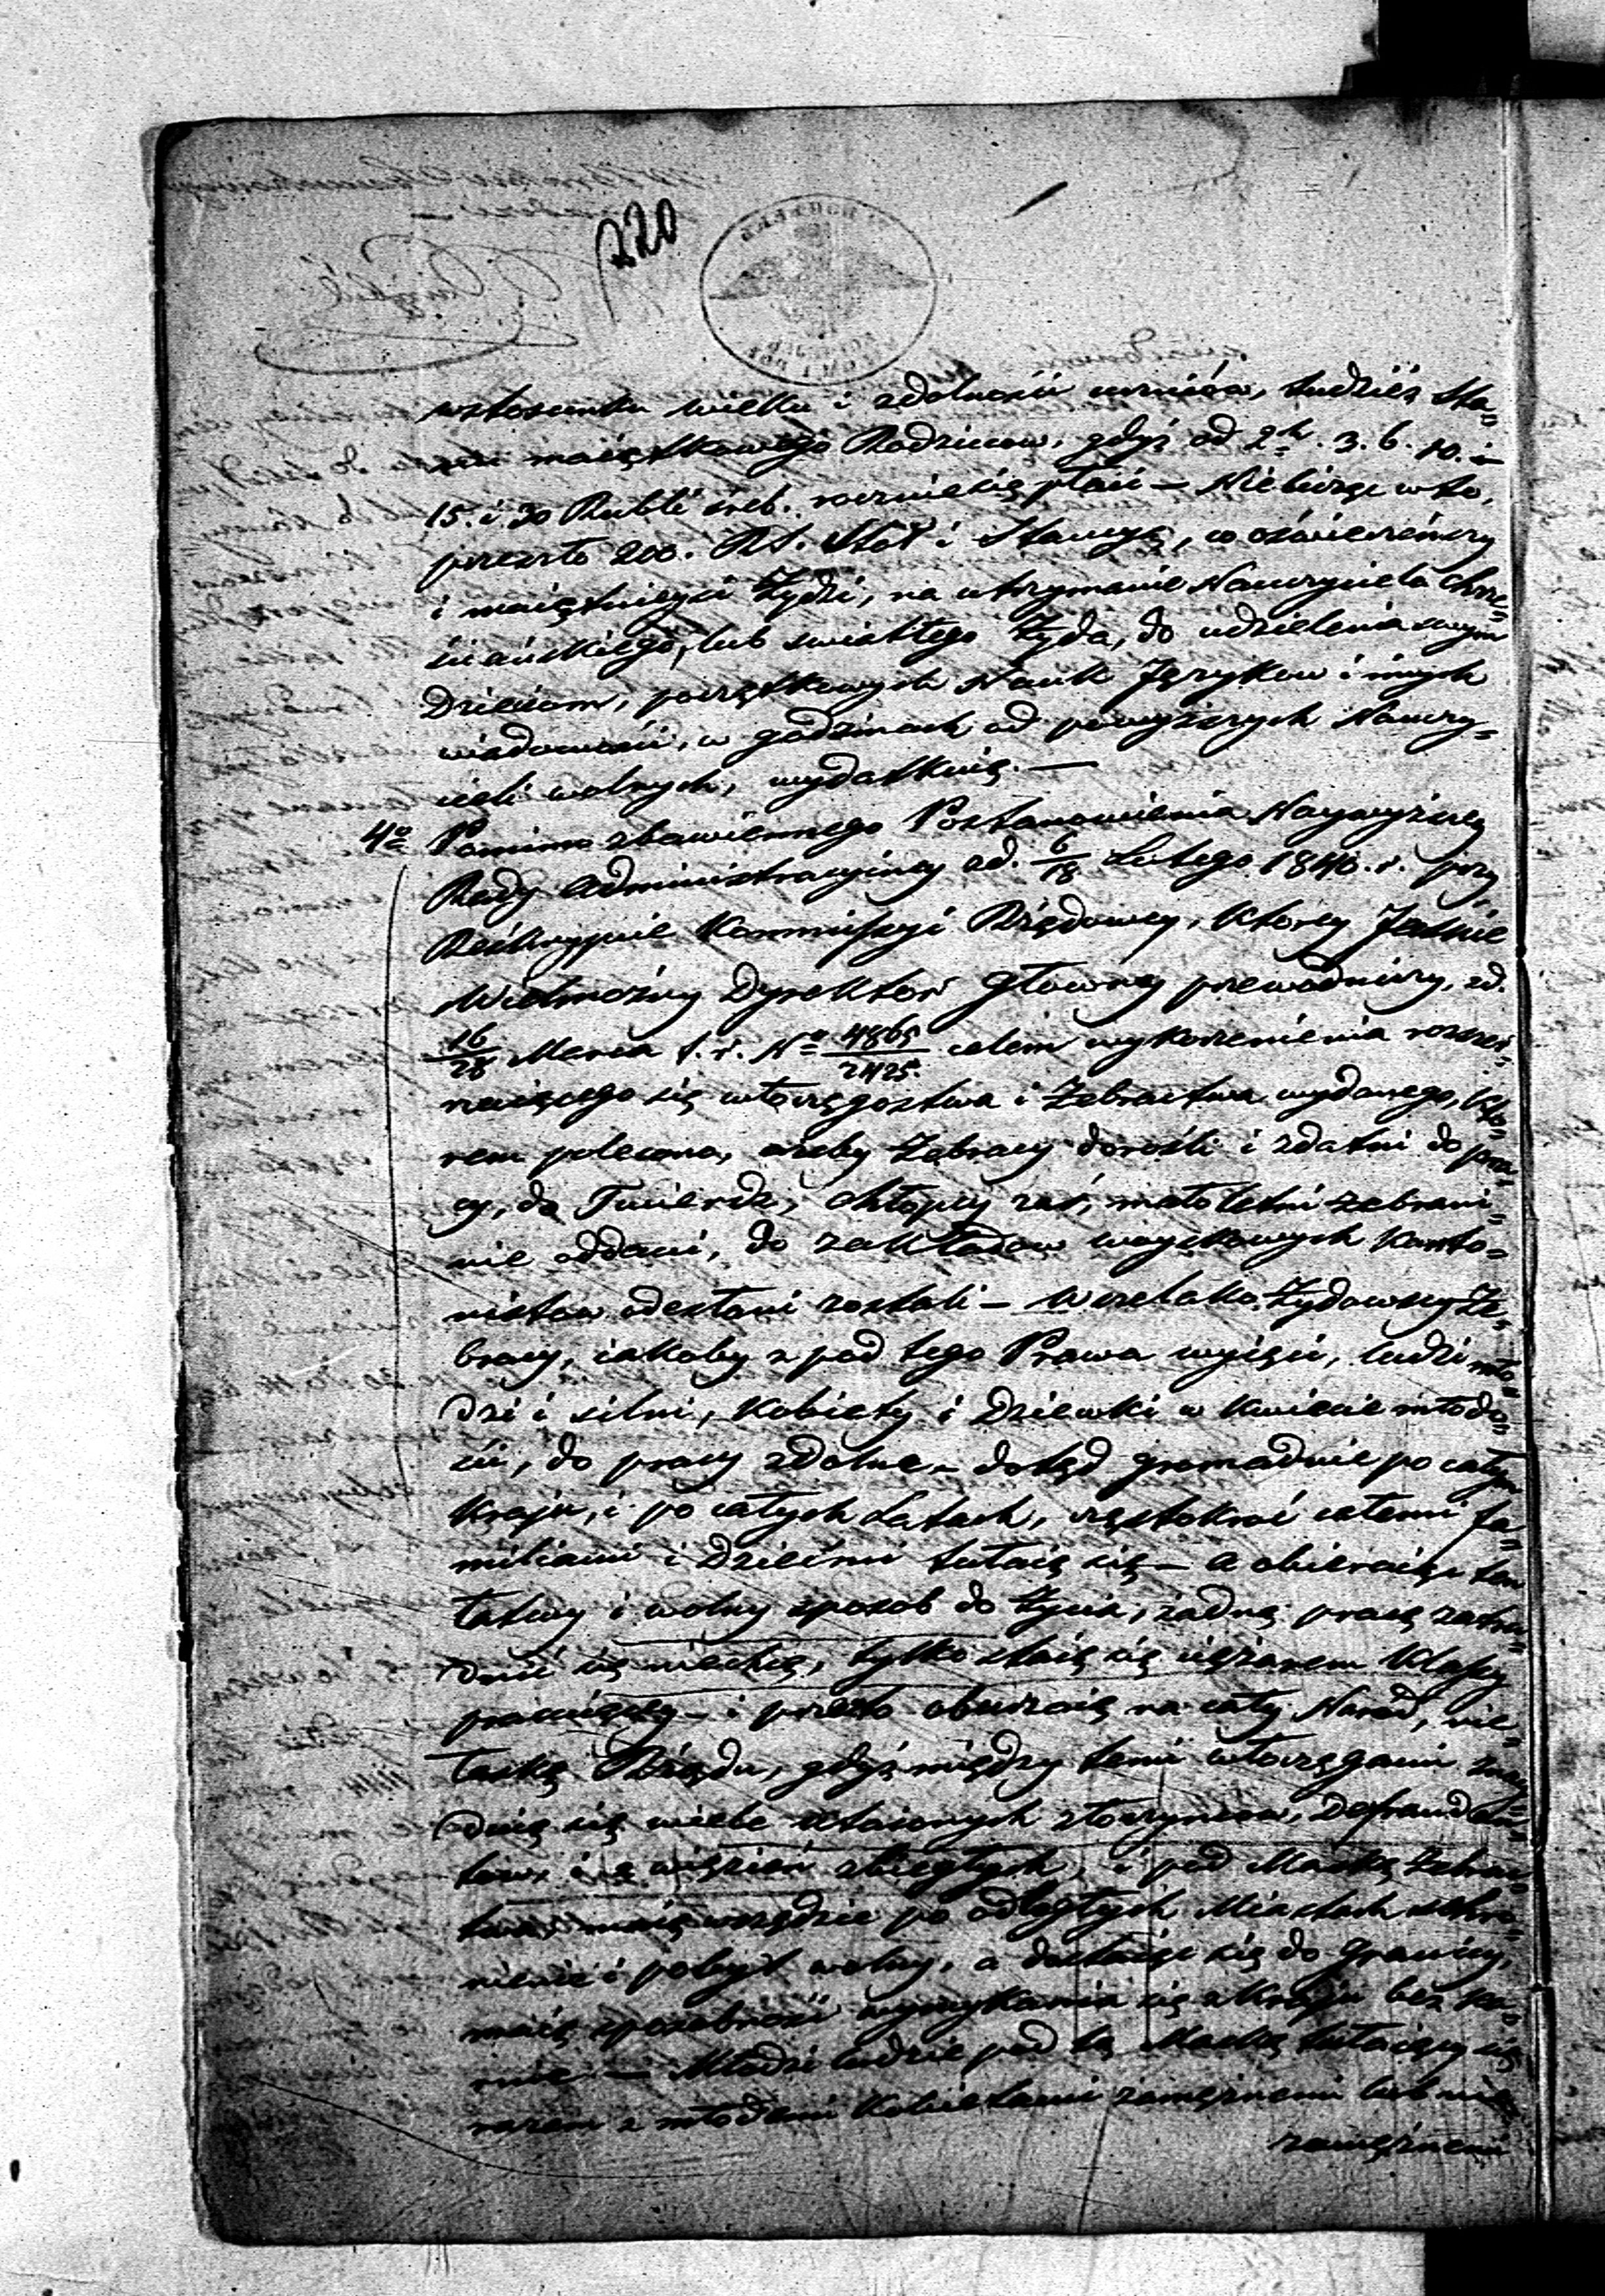 220
wstosunku wieku i zdolności uczniów, tudzież sta=
nu maiątkowego Rodziców, gdyż od 2ch. 3. 6. 10. i
15. i 30 Rubli sreb. rocznie się płaci – Nie licząc w to,
przeszło 200. RS. Stół i Stancyą, co oświeceńszy
i maiętnieysi Żydzi, na utrzymanie Nauczyciela Chrze=
ściańskiego, lub swiatłego Żyda, do udzielenia swym
Dzieciom, początkowych Nauk Języków i innych
wiadomości, w godzinach od powyższych Nauczy=
cieli wolnych, wydatkuią. —
4o Pomimo zbawiennego Postanowienia Naywyższey
Rady Administracyiney z d. 6/18 Lutego 1840. r. przy
Reskrypcie Kommissyi Rządowey, którey Jaśnie
Wielmożny Dyrektor Główny prewodniczy, z d.
16/28 Marca t. r. No 4865/2425. celem wykorzenienia rozsze=
rzaiącego się włóczęgostwa i Żebractwa wydanego, któ=
rem polecono, ażeby Żebracy dorośli i zdatni do pra=
cy, do Twierdz, chłopcy zaś, małoletni żebrani=
nie oddani, do zakładów woyskowych Kanto=
nistów odesłani zostali – Wszelako Żydowscy Że=
bracy, iakoby z pod tego Prawa wyięci, ludzi mło=
dzi i silni, Kobiety i Dziewki w kwiecie młodo=
ści, do pracy zdolne – dotąd gromadnie po całym
Kraju, i po całych Latach, częstokroć całemi fa=
miliami i Dziećmi tułaią się – a obieraiąc ten
łatwy i wolny sposób do Życia, żadną pracą zatru=
dnić się niechcą, tylko staią się ciężarem Klassy
pracuiącey – i przeto oburzaią na cały Naród, nie=
łaskę Rządu, gdyż między temi włóczęgami znay=
duią się wiele utaionych złoczyńców, Defraudan=
tów, i z więzień zbiegłych, i pod Maską żebrac=
twa, maią wszędzie po odległych Miastach schro=
nienie i pobyt wolny, a dostaiąc się do Granicy,
maią sposobność wymykania się z Kraju bez ka=
rnie – Młodzi ludzie pod tą Maską tułaiący się
razem z młodemi Kobietami zamężnemi lub nie=
zamężnemi